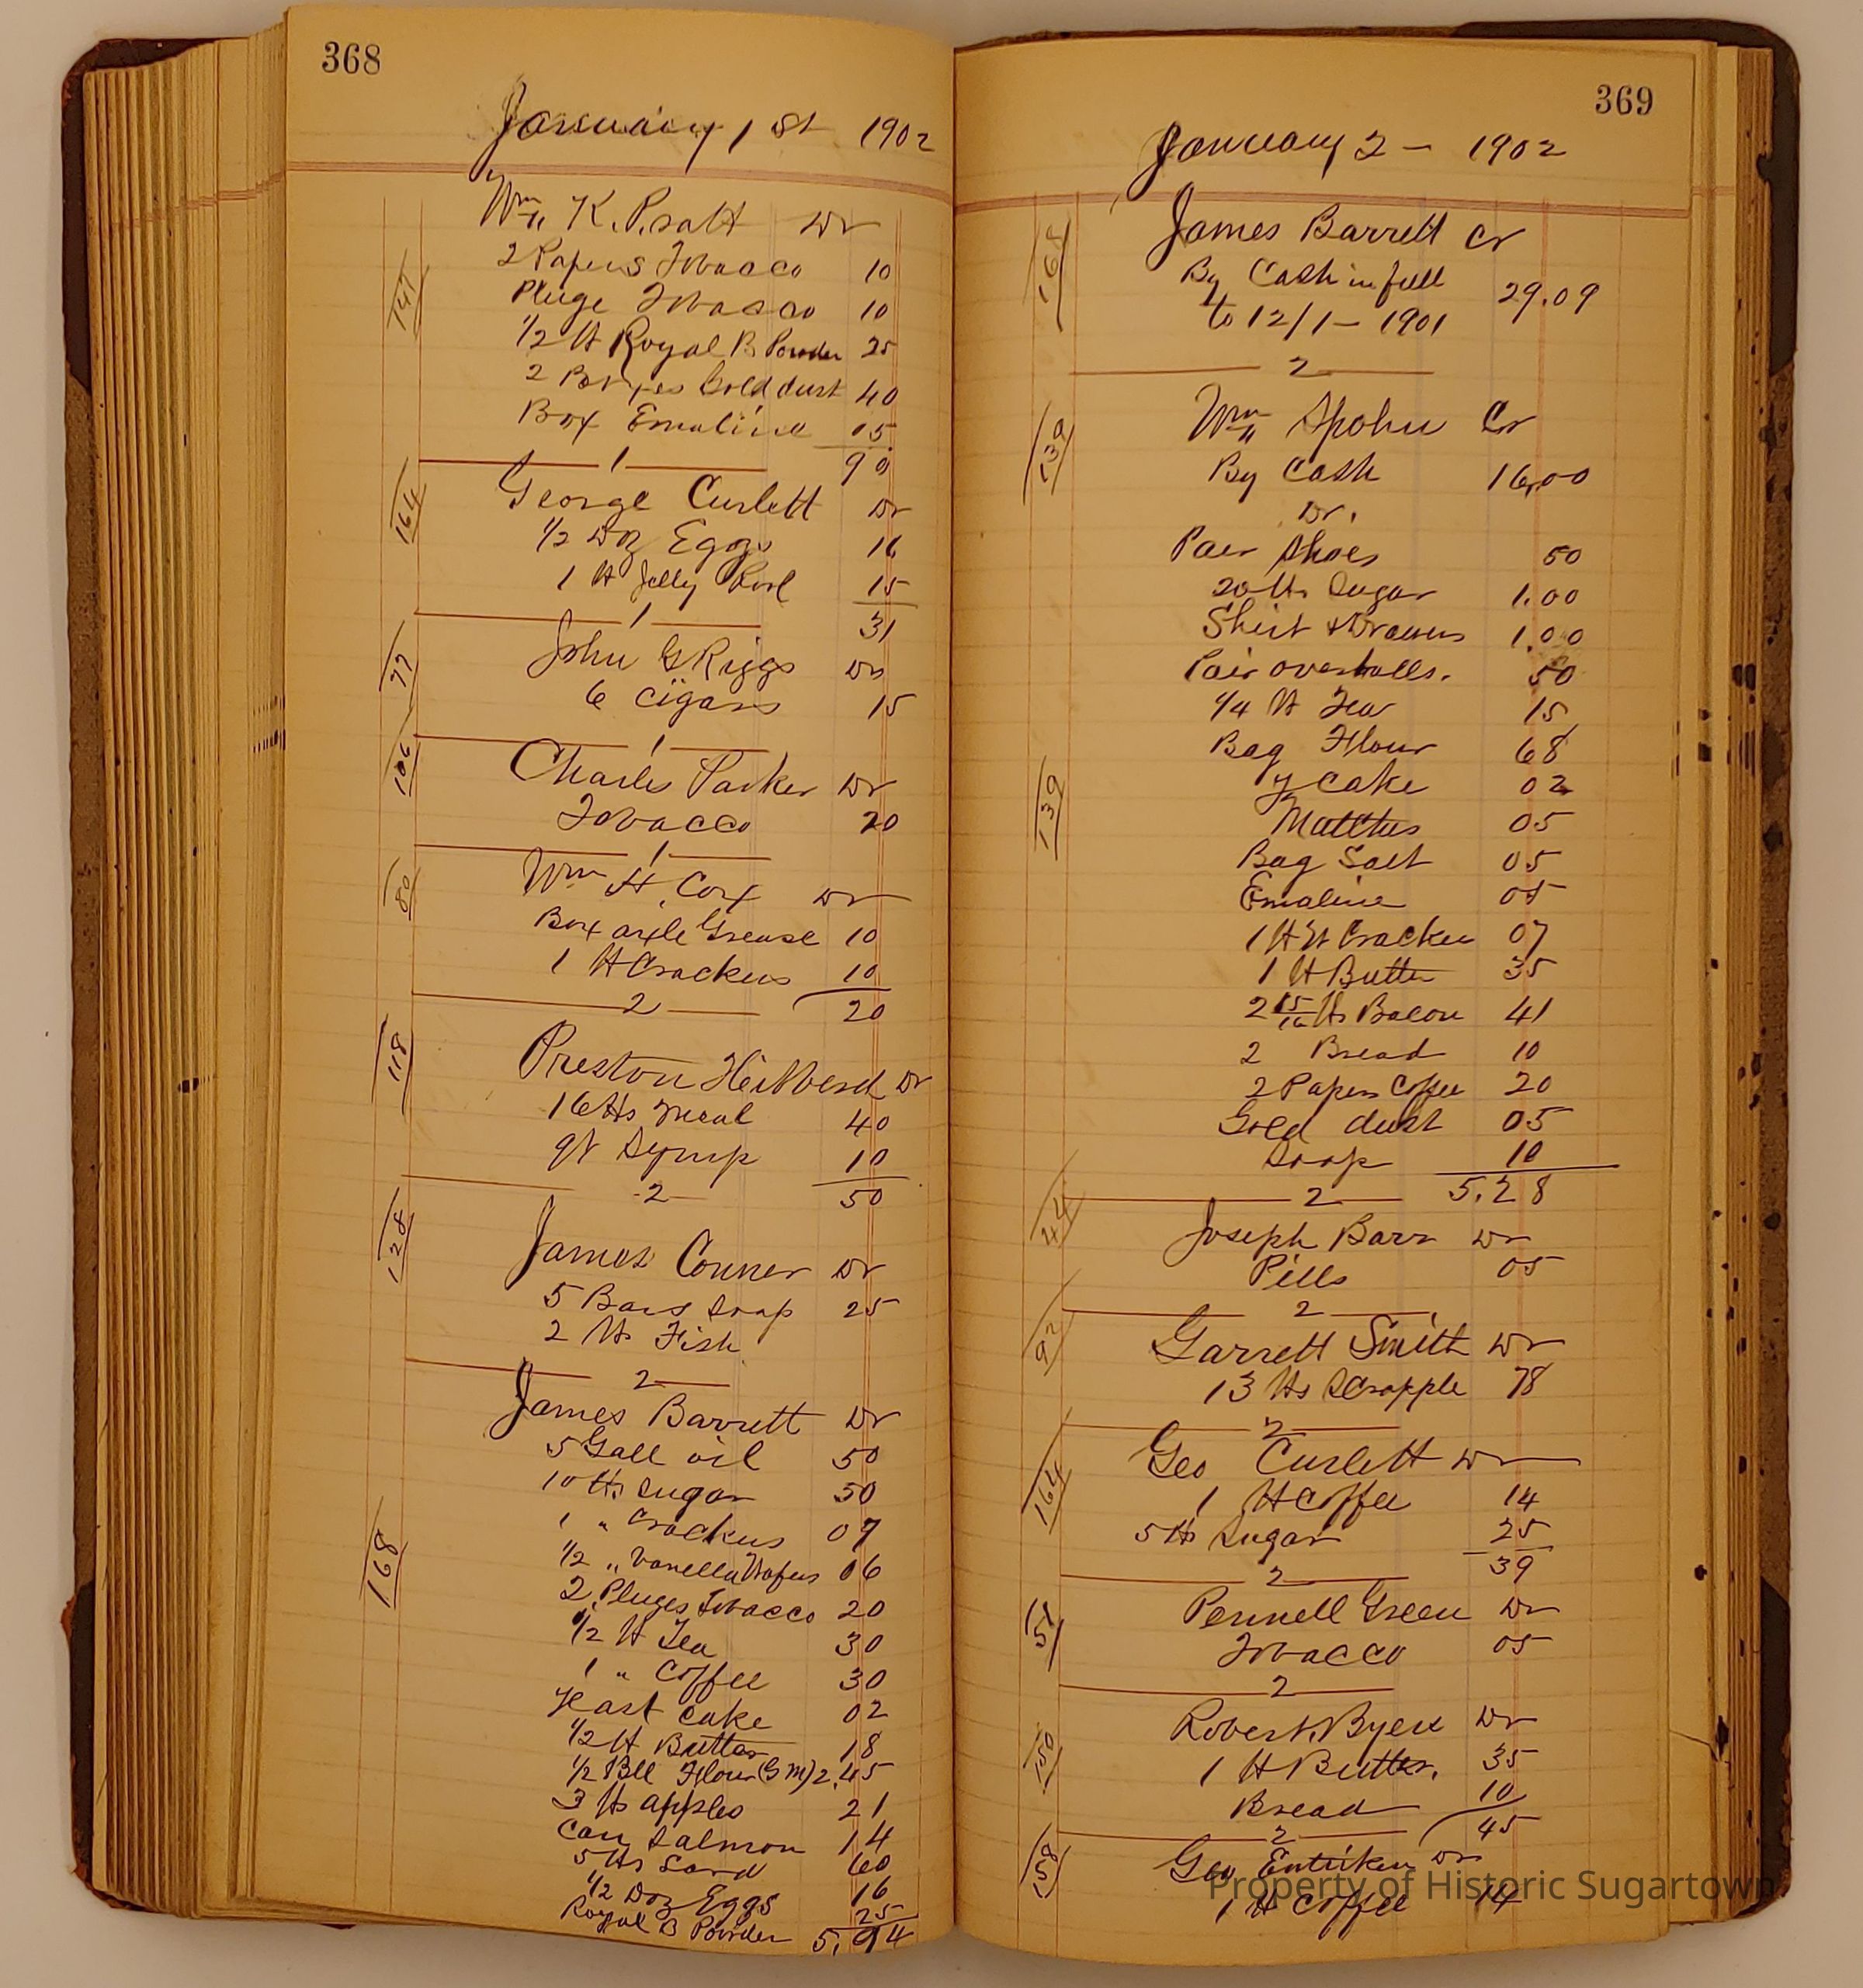 368
January 1st 1902
Wm K. Pratt Dr
147
2 Papers Tobacco 10
Pluge Tobacco 10
1/2 lb Royal B Powder 25
2 Boxes Gold dust 40
Box Emaline 05
1 90
164
George Curlett Dr
1/2 Doz Eggs 16
1 lb Jelly 15
1 31
77
John G Riggs Dr
6 Cigars 15
1
106
Charles Parker Dr
Tobacco 20
1
80
Wm H. Cox Dr
Box axle Grease 10
1 lb Crackers 10
2 20
118
Preston Hibberd Dr
16 lbs meal 40
qt Syrup 10
2 50
128
James Conner Dr
5 Bars Soap 25
2 lbs Fish
2
James Barrett Dr
5 Gall oil 50
10 lbs Sugar 50
1 " Crackers 07
168
1/2 " Vanella Wafers 06
2 Pluges Tobacco 20
1/2 lb Tea 30
1 " Coffee 30
Yeast Cake 02
1/2 lb Butter 18
1/2 Bbl Flour (G M) 2.45
3 lbs apples 21
Can Salmon 14
5 lbs Lard 60
1/2 Doz Eggs 16
Royal B Powder 25
5.94
369
January 2 - 1902
168
James Barrett Cr
By Cash in full
to 12/1 - 1901 29.09
2
139
Wm Spohn Cr
By Cash 16.00
Dr.
Pair Shoes 50
20 lbs Sugar 1.00
Shirt & Drawers 1.00
Pair overhalls. 50
1/4 lb Tea 15
Bag Flour 68
139
Y Cake 02
Matches 05
Bag Salt 05
Emaline 05
1 lb Cracker 07
1 lb Butter 35
2 15/16 lbs Bacon 41
2 Bread 10
2 Papers Coffee 20
Gold dust 05
Soap 10
2 5.28
42
Joseph Barr Dr
Pills 05
2
92
Garrett Smith Dr
13 lbs Scrapple 78
2
164
Geo Curlett Dr
1 lb Coffee 14
5 lbs Sugar 25
2 39
51
Pennell Green Dr
Tobacco 05
2
150
Robert Byers Dr
1 lb Butter. 35
Bread 10
2 45
158
Geo Entriken Dr
1 lb Coffee 14
Property of Historic Sugartown